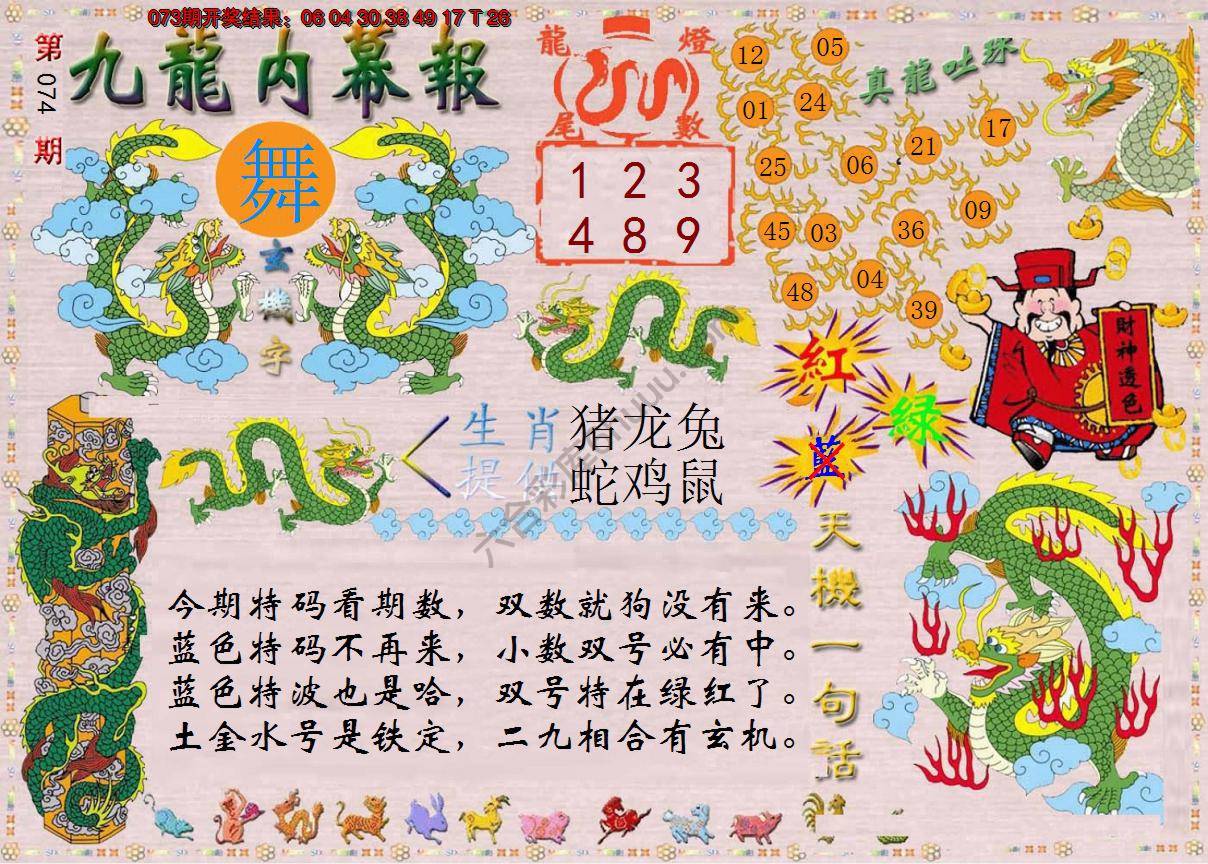 073期开奖结果：06 04 30 38 49 17 T 26
第074期
九龍内幕報
舞
玄機字
龍燈
尾數
1 2 3
4 8 9
真龍吐珠
12 05
01 24
25 06 21 17
45 03 36 09
48 04 39
財神透色
紅
綠
藍
生肖 猪龙兔
提供 蛇鸡鼠
天機一句話
今期特码看期数，双数就狗没有来。
蓝色特码不再来，小数双号必有中。
蓝色特波也是哈，双号特在绿红了。
土金水号是铁定，二九相合有玄机。